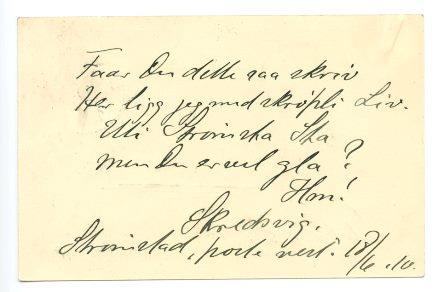 Faar Du dette saa skriv
Her ligg jeg med skröpli Liv.
Uti Strömsta Sta
men Du er vel gla?
Hm!
Skredsvig.
Strömstad, poste rest. 18/6.10.